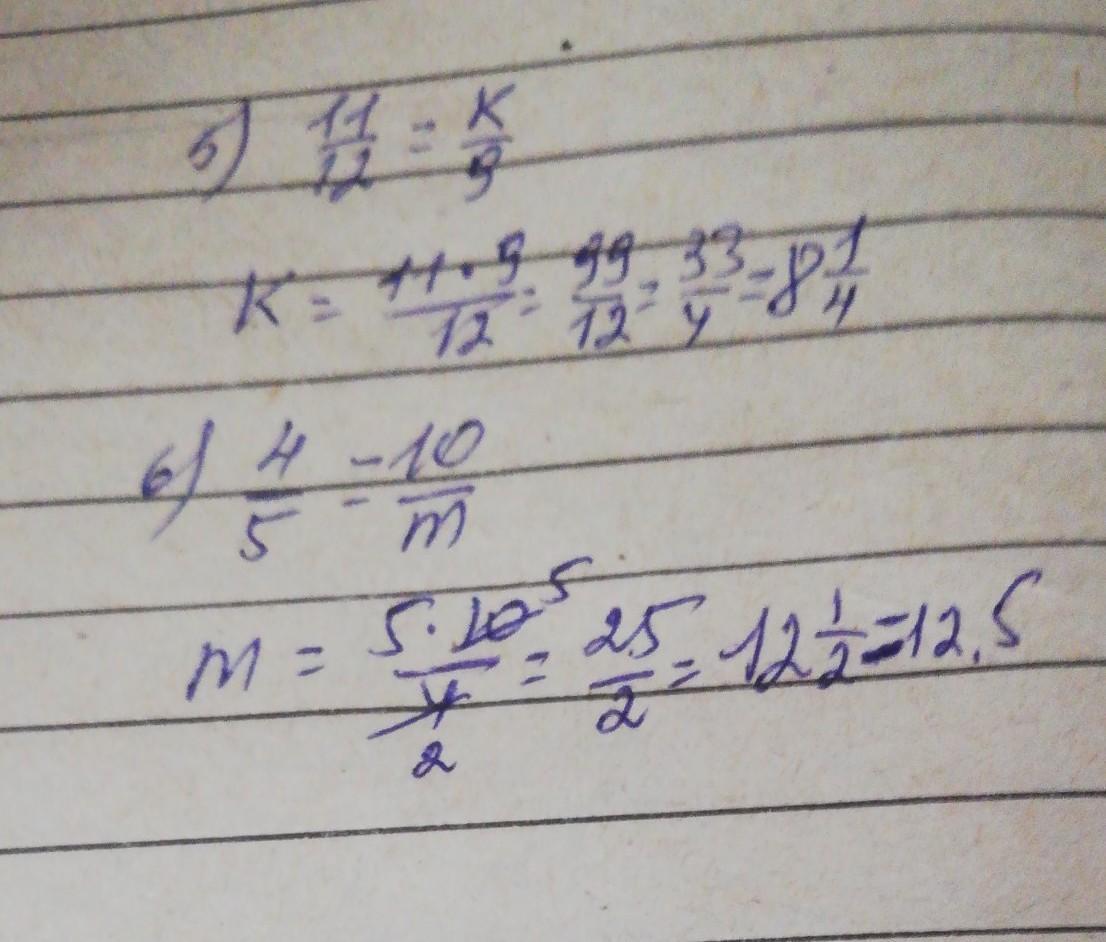 5) 11/12 = K/9
K = 11·9/12 = 99/12 = 33/4 = 8 1/4
6) 4/5 = 10/m
m = 5·10 5/4 2 = 25/2 = 12 1/2 = 12.5